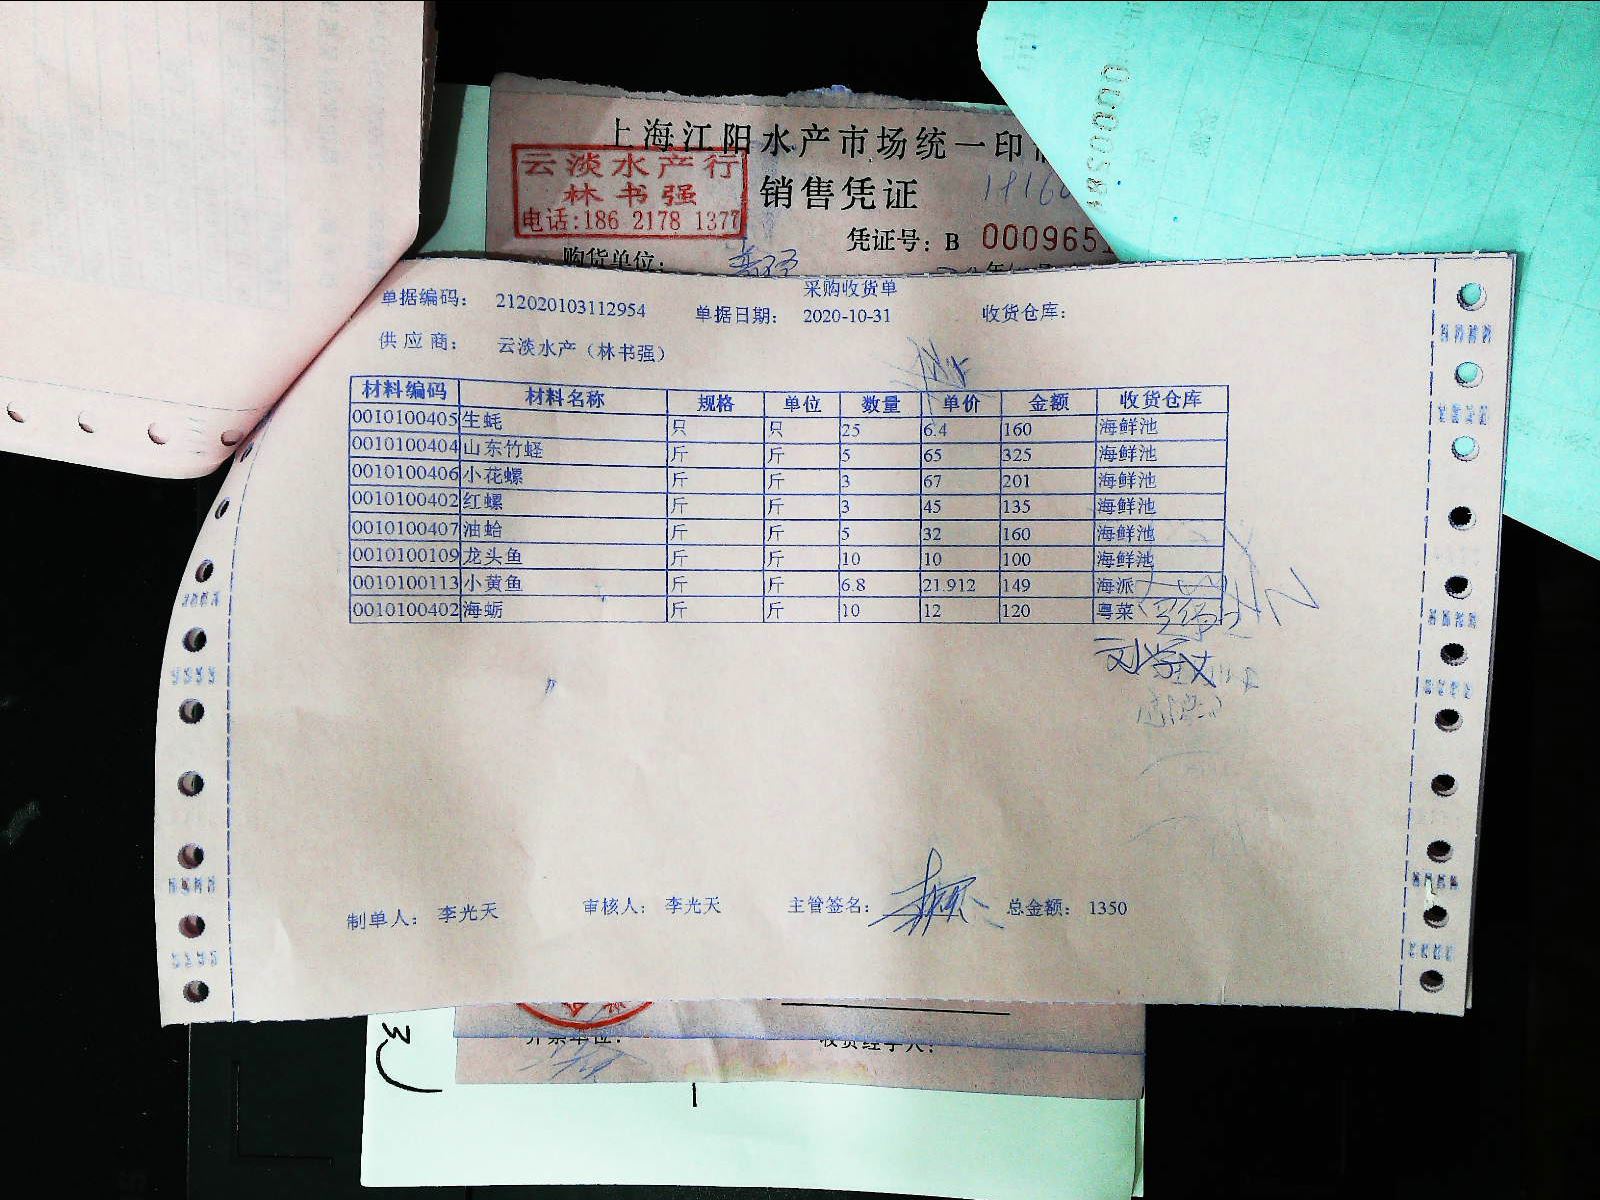 上海江阳水产市场统一印
云淡水产行
林书强
电话:186 2178 1377
销售凭证
凭证号: B 000965
购货单位:
采购收货单
单据编码: 212020103112954 单据日期: 2020-10-31 收货仓库:
供应商: 云淡水产（林书强）
材料编码 材料名称 规格 单位 数量 单价 金额 收货仓库
0010100405 生蚝 只 只 25 6.4 160 海鲜池
0010100404 山东竹蛏 斤 斤 5 65 325 海鲜池
0010100406 小花螺 斤 斤 3 67 201 海鲜池
0010100402 红螺 斤 斤 3 45 135 海鲜池
0010100407 油蛤 斤 斤 5 32 160 海鲜池
0010100109 龙头鱼 斤 斤 10 10 100 海鲜池
0010100113 小黄鱼 斤 斤 6.8 21.912 149 海派
0010100402 海蛎 斤 斤 10 12 120 粤菜
制单人: 李光天 审核人: 李光天 主管签名: 总金额: 1350
开票单位: 收货经手人: